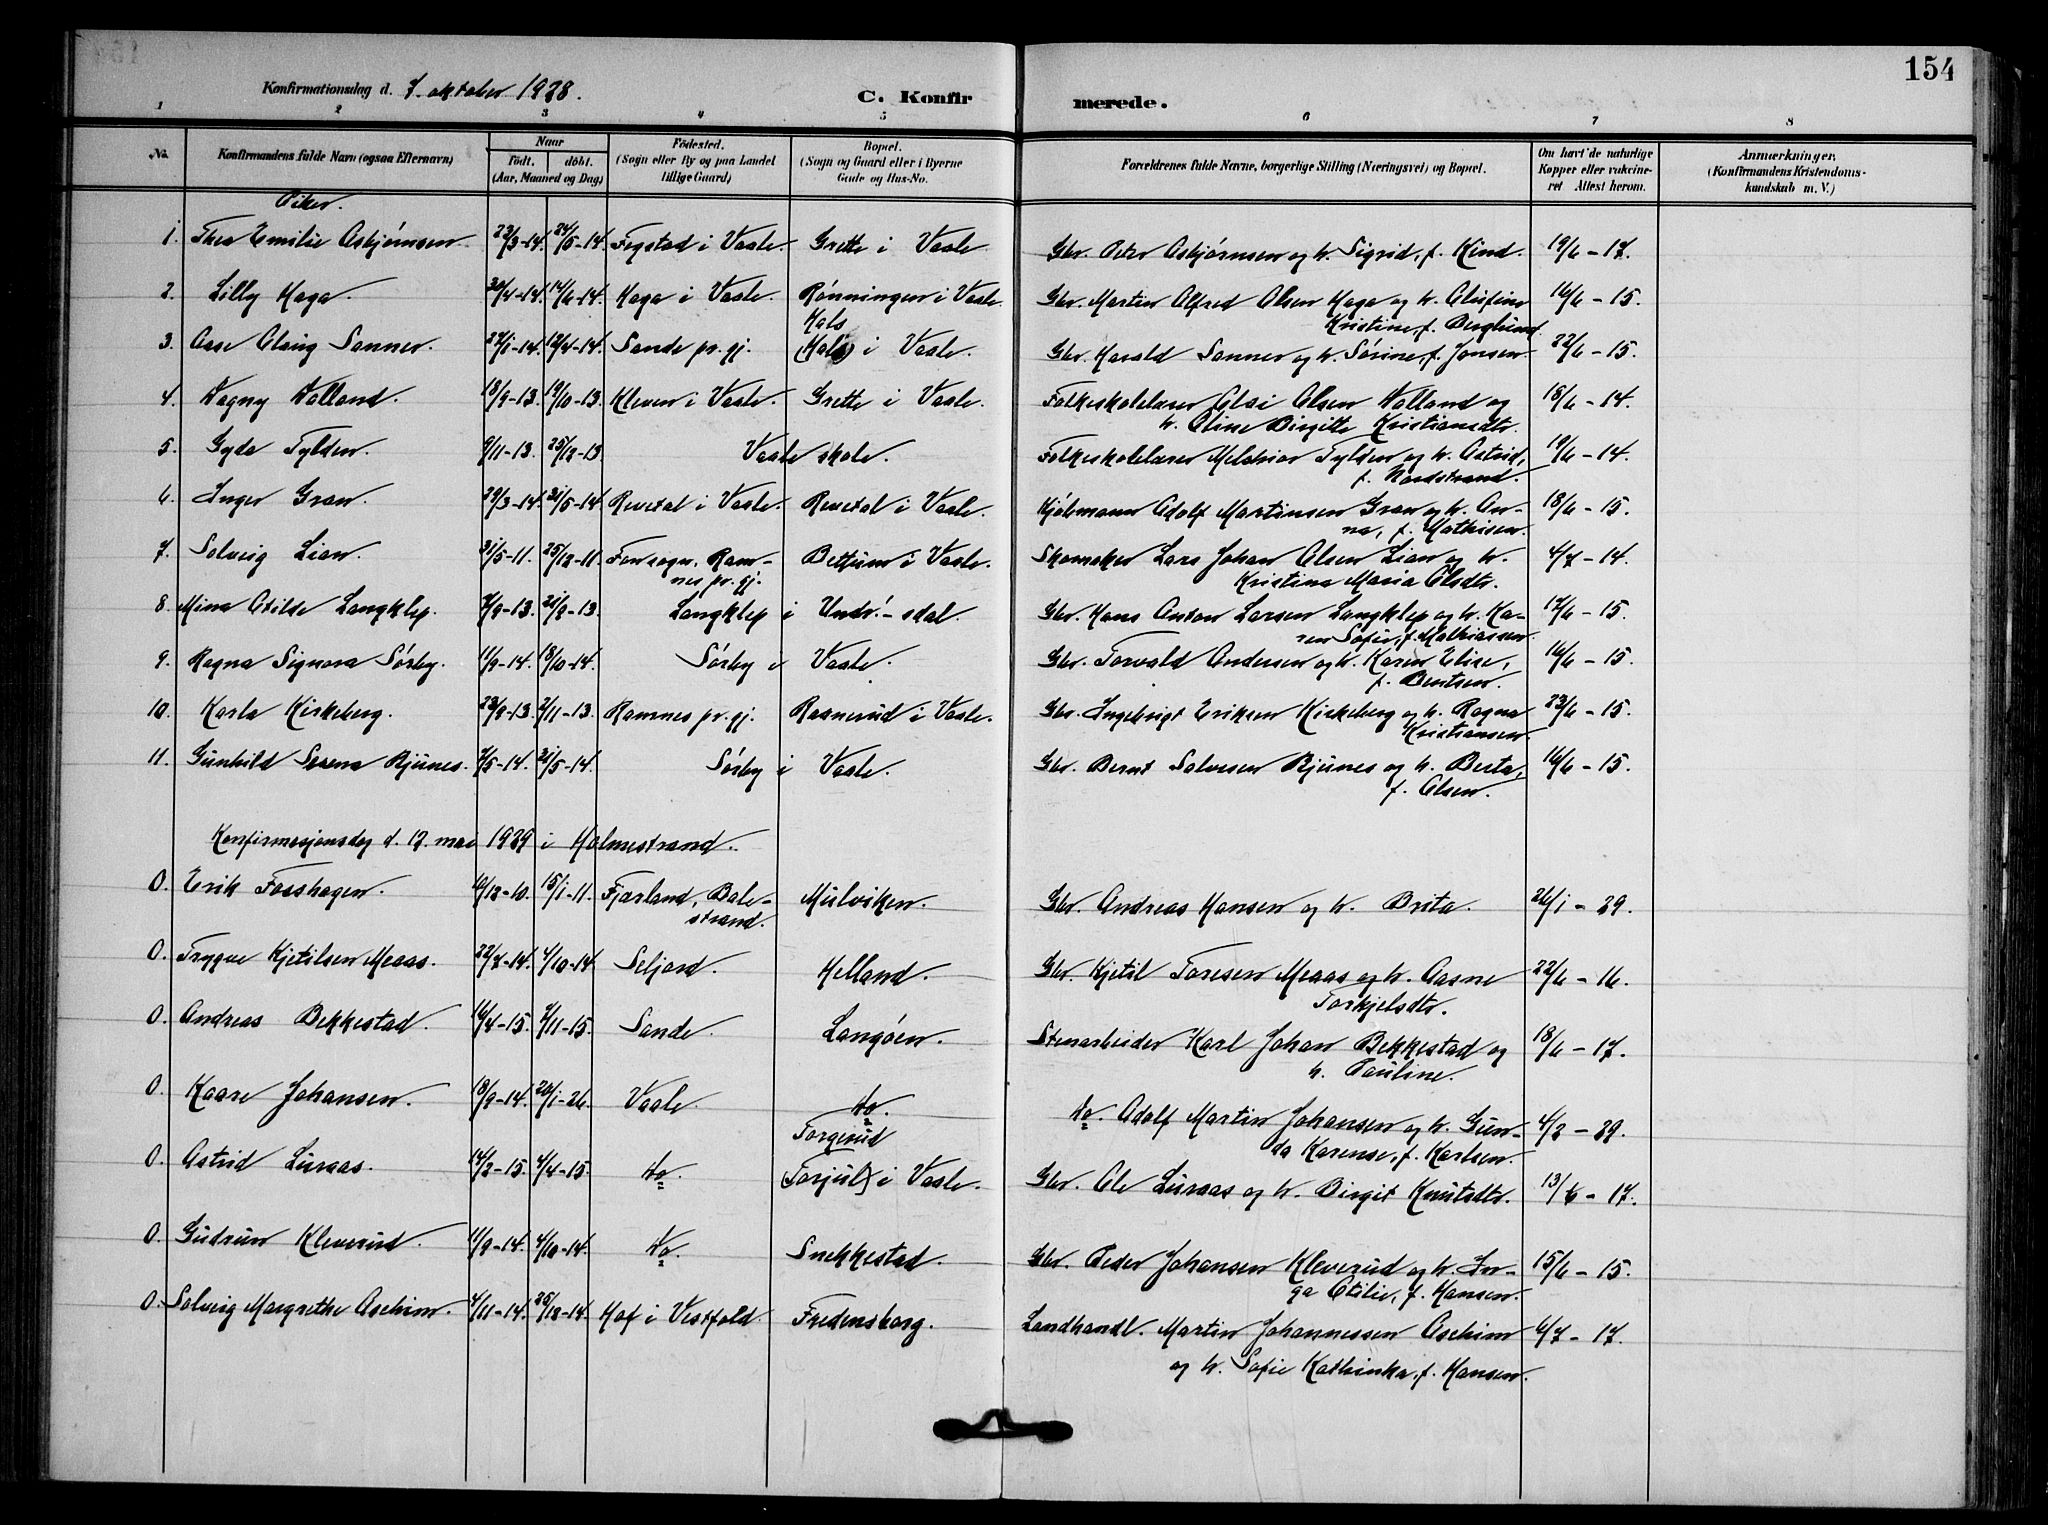 154
Konfirmationsdag d. 7. oktober 1928. C. Konfirmerede.
1 2 3 4 5 6 7 8
No. Konfirmandens fulde Navn (ogsaa Efternavn) Naar Födt. döbt. (Aar, Maaned og Dag) Födested. (Sogn eller By og paa Landet tillige Gaard) Bopæl. (Sogn og Gaard eller i Byerne Gade og Hus-No. Forældrenes fulde Navne, borgerlige Stilling (Næringsvei) og Bopæl. Om havt de naturlige Kopper eller vakcineret Attest herom. Anmærkninger. (Konfirmandens Kristendomskundskab m. V.)
Piker.
1. Thea Emilie Asbjørnsen 23/3-14. 24/5-14. Fogstad i Vaale. Grette i Vaale Gbr. Peter Asbjørnsen og h. Sigrid, f. Kind. 19/6-17.
2. Lilly Haga. 30/4-14. 14/6-14. Haga i Vaale. Rønningen i Vaale. Gbr. Martin Alfred Olsen Haga og h. Olufine 16/6-15.
Kristine, f. Berglund.
Hals
3. Aase Olaug Sanner. 27/1-14. 12/4-14. Sande pr.gj. (Hals) i Vaale. Gbr. Harald Sanner og h. Sørine, f. Jonsen. 22/6-15.
4. Dagny Dalland. 18/9-13. 19/10-13. Kleven i Vaale. Grette i Vaale. Folkeskolelærer Olai Olsen Dalland og 18/6-14.
h. Oline Birgitte Kristiansdtr.
5. Gyda Tylden. 9/11-13. 25/12-13 Vaale skole. Folkeskolelærer Melchior Tylden og h. Astrid, 19/6-14.
f. Nordstrand.
6. Inger Gran. 29/3-14. 31/5-14. Revetal i Vaale. Revetal i Vaale. Kjøbmann Adolf Martinsen Gran og h. An- 18/6-15.
na, f. Mathisen.
7. Solveig Lian. 31/5-11. 25/12-11. Fon sogn, Ram- Bettum i Vaale. Skomaker Lars Johan Olsen Lian og h. 4/7-14.
nes pr.gj. Kristina Maria Olsdtr.
8. Mina Otilde Langklep. 7/9-13. 21/9-13. Langklep i Undr.-sdal. Gbr. Hans Anton Larsen Langklep og h. Ka- 17/6-15.
ren Sofie, f. Mathiassen.
9. Ragna Signora Sørby. 11/9-14. 18/10-14. Sørby i Vaale. Gbr. Torvald Andersen og h. Karen Elise, 16/6-15.
f. Bentsen.
10. Karla Kirkeberg. 23/9-13. 2/11-13. Ramnes pr.gj. Raanerud i Vaale. Gbr. Ingebrigt Eriksen Kirkeberg og h. Ragna 23/6-15.
Kristiansen.
11. Gunhild Serena Bjunes. 7/5-14. 31/5-14. Sørby i Vaale. Gbr. Bernt Salvesen Bjunes og h. Berta, 16/6-15.
f. Olsen.
Konfirmasjonsdag d. 12. mai 1929 i Holmestrand.
0. Erik Fosshagen. 10/12-10. 15/1-11. Fjærland, Bale- Mulviken. Gbr. Andreas Hansen og h. Brita. 26/1-29.
strand.
0. Trygve Kjetilsen Meaas. 22/7-14. 4/10-14. Seljord. Helland. Gbr. Kjetil Toresen Meaas og h. Aasne 22/6-16.
Torkjelsdtr.
0. Andreas Bekkestad. 16/4-15. 7/11-15. Sande. Langøen. Stenarbeider Karl Johan Bekkestad og 18/6-17.
h. Pauline.
0. Kaare Johansen. 18/9-14. 20/1-26. Vaale. do. do. Adolf Martin Johansen og h. Gun- 4/2-29.
Torgerud da Karense, f. Karlsen.
0. Astrid Luraas. 14/2-15. 4/4-15. do. (Torjul) i Vaale. Gbr. Ole Luraas og h. Birgit Knutsdtr. 13/6-17.
0. Gudrun Kleverud. 11/9-14. 4/10-14. do. Snekkestad. Gbr. Peder Johansen Kleverud og h. In- 15/6-15.
ga Otilie, f. Hansen.
0. Solveig Margrethe Aseheim. 4/11-14. 25/12-14. Hof i Vestfold. Fredensborg. Landhandl. Martin Johannessen Aseheim 6/7-17.
og h. Sofie Kathinka, f. Hansen.